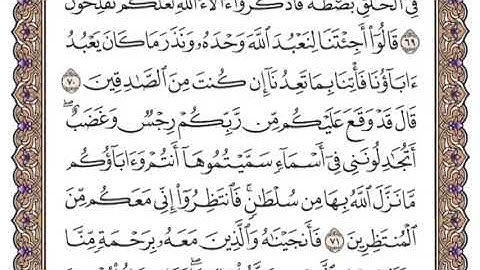 فِى ٱلۡخَلۡقِ بَصۜۡطَةٗۖ فَٱذۡكُرُوٓاْ ءَالَآءَ ٱللَّهِ لَعَلَّكُمۡ تُفۡلِحُونَ
٦٩ قَالُوٓاْ أَجِئۡتَنَا لِنَعۡبُدَ ٱللَّهَ وَحۡدَهُۥ وَنَذَرَ مَا كَانَ يَعۡبُدُ
ءَابَآؤُنَا فَأۡتِنَا بِمَا تَعِدُنَآ إِن كُنتَ مِنَ ٱلصَّٰدِقِينَ ٧٠
قَالَ قَدۡ وَقَعَ عَلَيۡكُم مِّن رَّبِّكُمۡ رِجۡسٞ وَغَضَبٌۖ
أَتُجَٰدِلُونَنِى فِىٓ أَسۡمَآءٖ سَمَّيۡتُمُوهَآ أَنتُمۡ وَءَابَآؤُكُم
مَّا نَزَّلَ ٱللَّهُ بِهَا مِن سُلۡطَٰنٖۚ فَٱنتَظِرُوٓاْ إِنِّى مَعَكُم مِّنَ
ٱلۡمُنتَظِرِينَ ٧١ فَأَنجَيۡنَٰهُ وَٱلَّذِينَ مَعَهُۥ بِرَحۡمَةٖ مِّنَّا